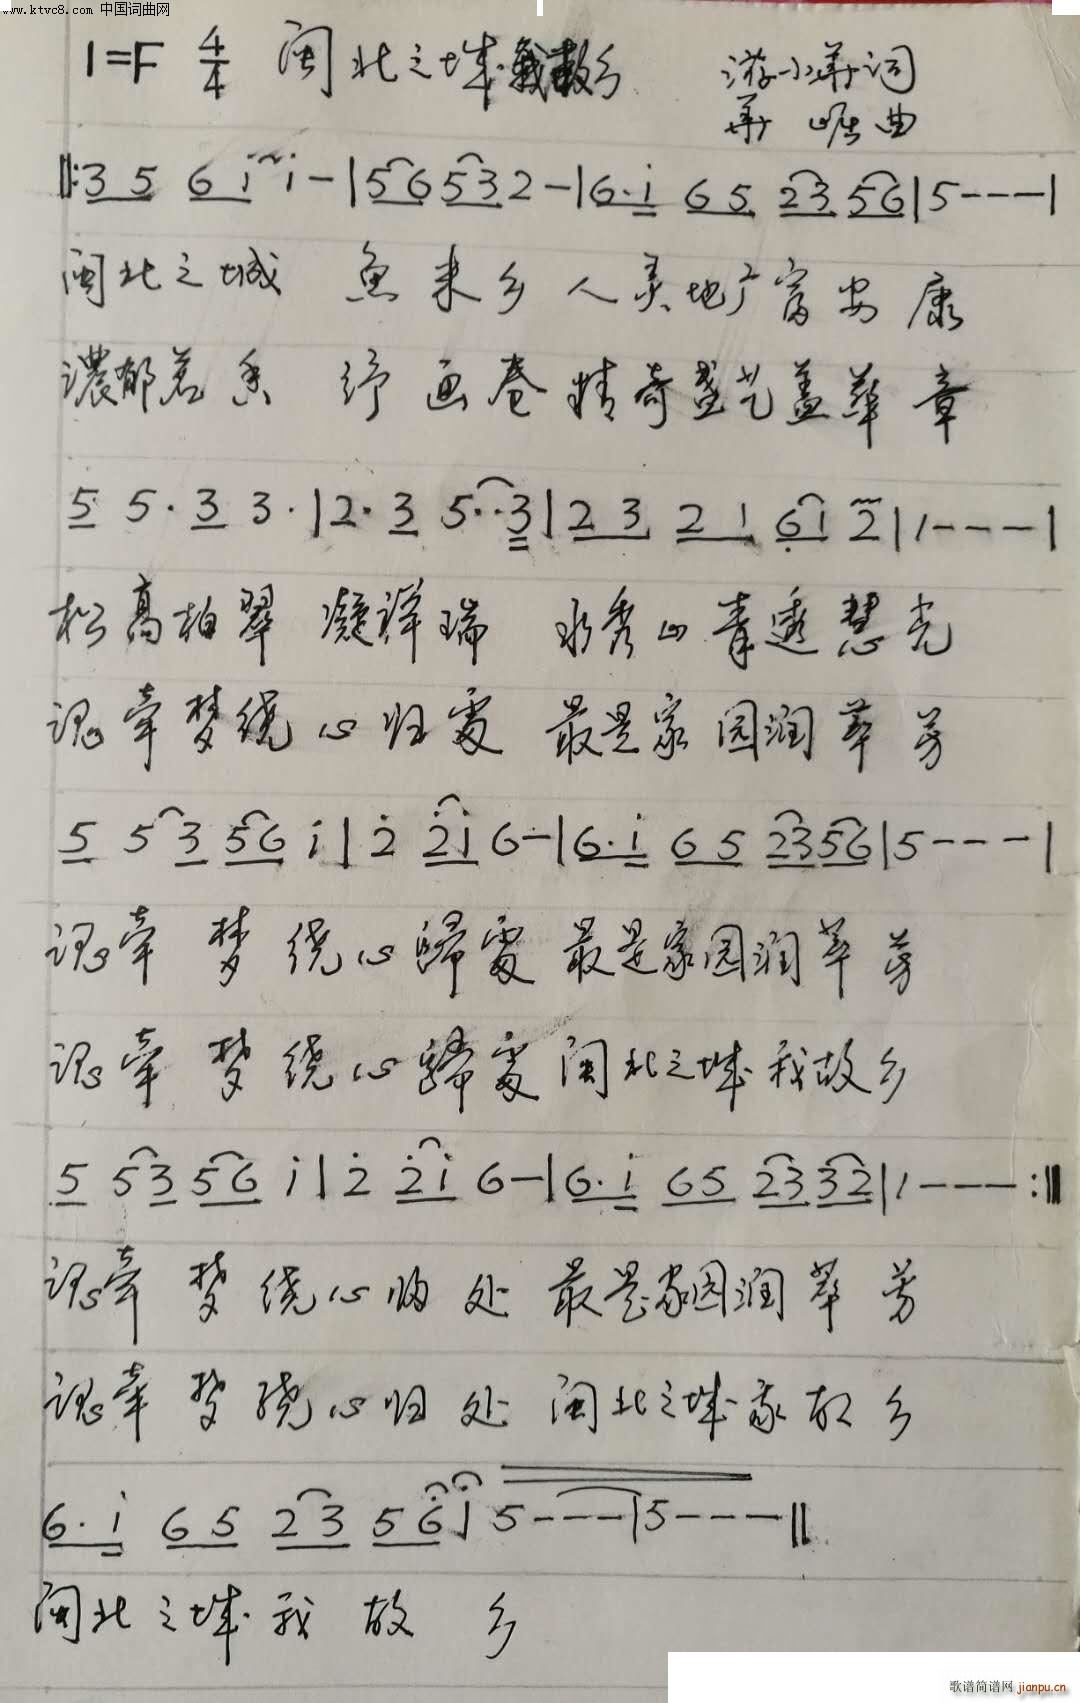 www.ktvc8.com 中国词曲网
1=F 4/4 闽北之城我故乡 游小华词
华 崌曲
‖:3 5 6 i i - | 5 6 5 3 2 - | 6. i 6 5 2 3 5 6 | 5 - - - |
闽北之城 鱼米乡 人灵地广富安康
濃郁茗香 抒画卷 精奇盛艺盖華章
5 5. 3 3. | 2. 3 5.. 3 | 2 3 2 1 6 1 2 | 1 - - - |
松高柏翠 凝祥瑞 水秀山青透慧光
魂牵梦绕心归處 最是家园润華芳
5 5 3 5 6 i | 2 2 i 6 - | 6. i 6 5 2 3 5 6 | 5 - - - |
魂牵 梦绕心歸處 最是家园润華芳
魂牵 梦绕心歸處 闽北之城我故乡
5 5 3 5 6 i | 2 2 i 6 - | 6. i 6 5 2 3 3 2 | 1 - - - :‖
魂牵 梦绕心归处 最是家园润華芳
魂牵 梦绕心归处 闽北之城我故乡
6. i 6 5 2 3 5 6 i 5 - - - | 5 - - - ‖
闽北之城我故乡
歌谱简谱网 jianpu.cn